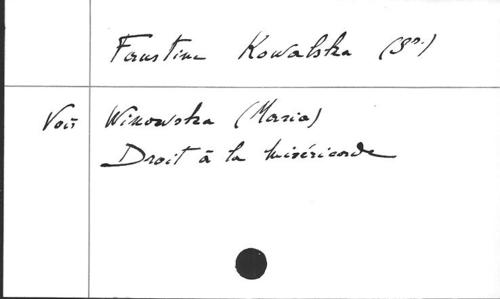 Faustine Kowalska (Sr.)
Voir Winowska (Maria)
Droit à la miséricorde